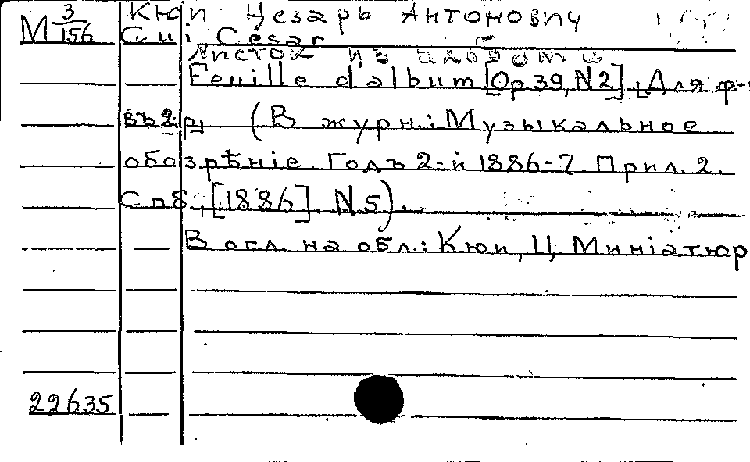 М 3/156 Кюи Цезарь Антонович
Cui César
Листок из альбома
Feuille d'album [Op. 39, N2]. [Для ф-
въ 2 р.] (В журн.: Музыкальное
обозрѣніе. Годъ 2-й 1886-7. Прил. 2.
Спб., [1886]. N 5).
В огл. на обл.: Кюи, Ц. Миніатюр
22635